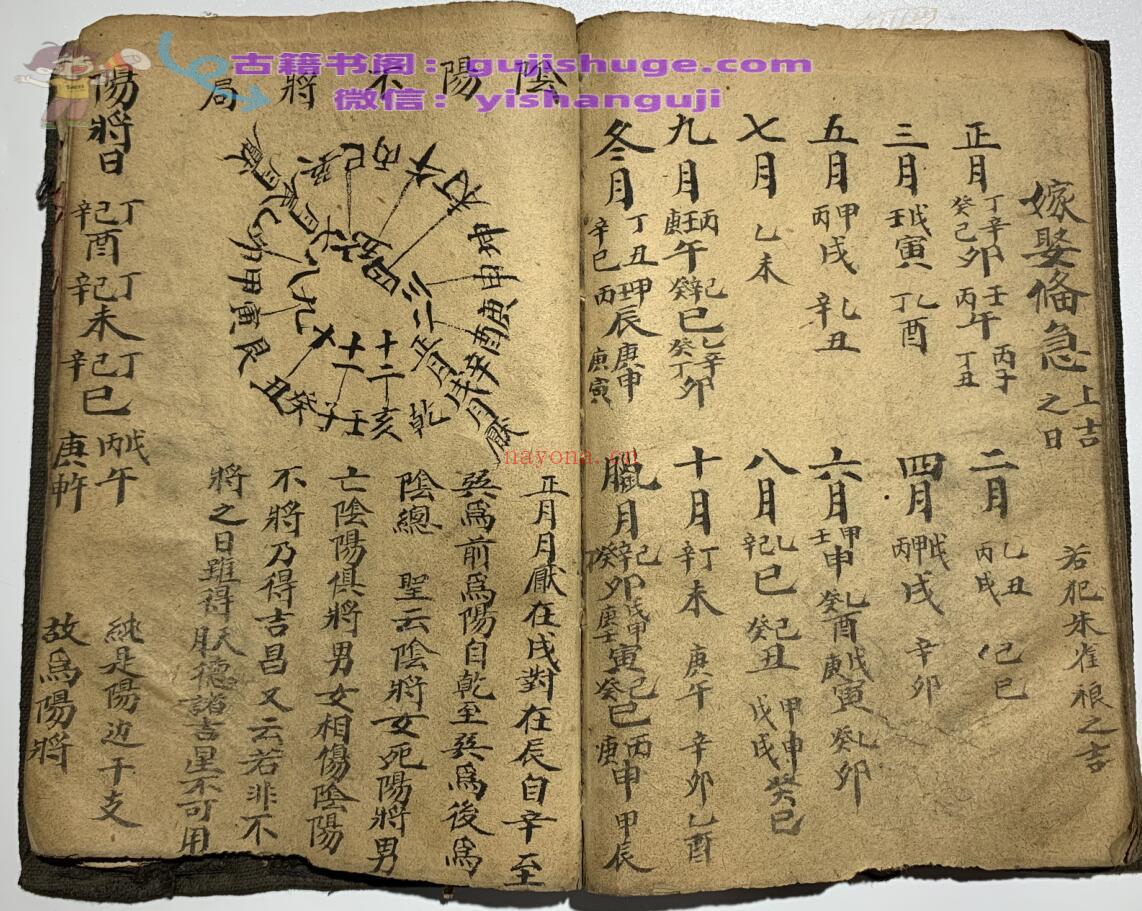 嫁娶俻急 上吉之日 若犯朱雀根之吉
正月 丁辛癸己卯 壬丙午 丙子 丁丑
二月 乙丑 丙戌 己巳
三月 戊壬寅 乙丁酉
四月 戊甲丙戌 辛卯
五月 甲丙戌 乙辛丑
六月 甲壬申 乙癸酉 戊庚寅 乙癸卯
七月 乙未
八月 乙辛巳 己癸丑 甲申 戊戌 癸巳
九月 丙壬庚午 己辛癸巳 乙辛癸丁卯
十月 丁辛未 庚午 辛卯 乙酉
冬月 丁丑 辛巳 甲壬丙辰 庚申 庚寅
臘月 己辛癸丁卯 戊甲庚壬寅 己癸巳 丙庚申 甲辰
陰陽不將局
乾 亥 壬 癸 丑 艮 寅 甲 丙 丁 未 坤 申 庚 酉 辛 戌 月厭
正月 二 三 四 五 六 八 九 十 十一 十二
正月月厭在戌對在辰自辛至
巽為前為陽自乾至巽為後為
陰總 聖云陰將女死陽將男
亡陰陽俱將男女相傷陰陽
不將乃得吉昌又云若非不
將之日雖得天德諸吉星不可用
陽將日 丁己辛酉 丁己辛未 丁己辛巳 戊丙午 庚午
純是陽边干支
故為陽將
古籍书阁：gujishuge.com
微信：yishanguji
nayona.cn